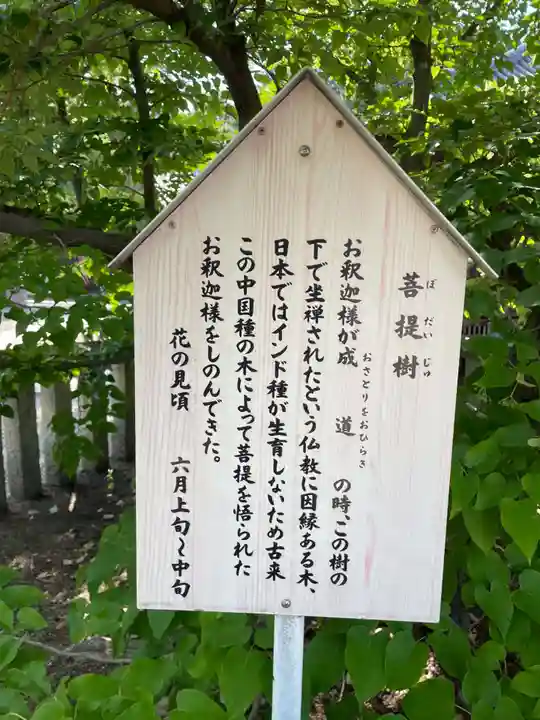 菩提樹
ぼだいじゅ
お釈迦様が成道の時、この樹の
おさとりをおひらき
下で坐禅されたという仏教に因縁ある木、
日本ではインド種が生育しないため古来
この中国種の木によって菩提を悟られた
お釈迦様をしのんできた。
花の見頃 六月上旬〜中旬